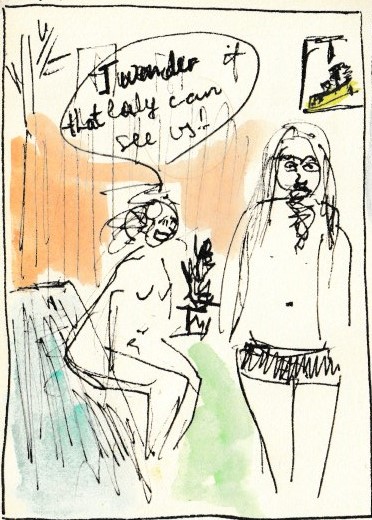 I wonder if
that lady can
see us!!